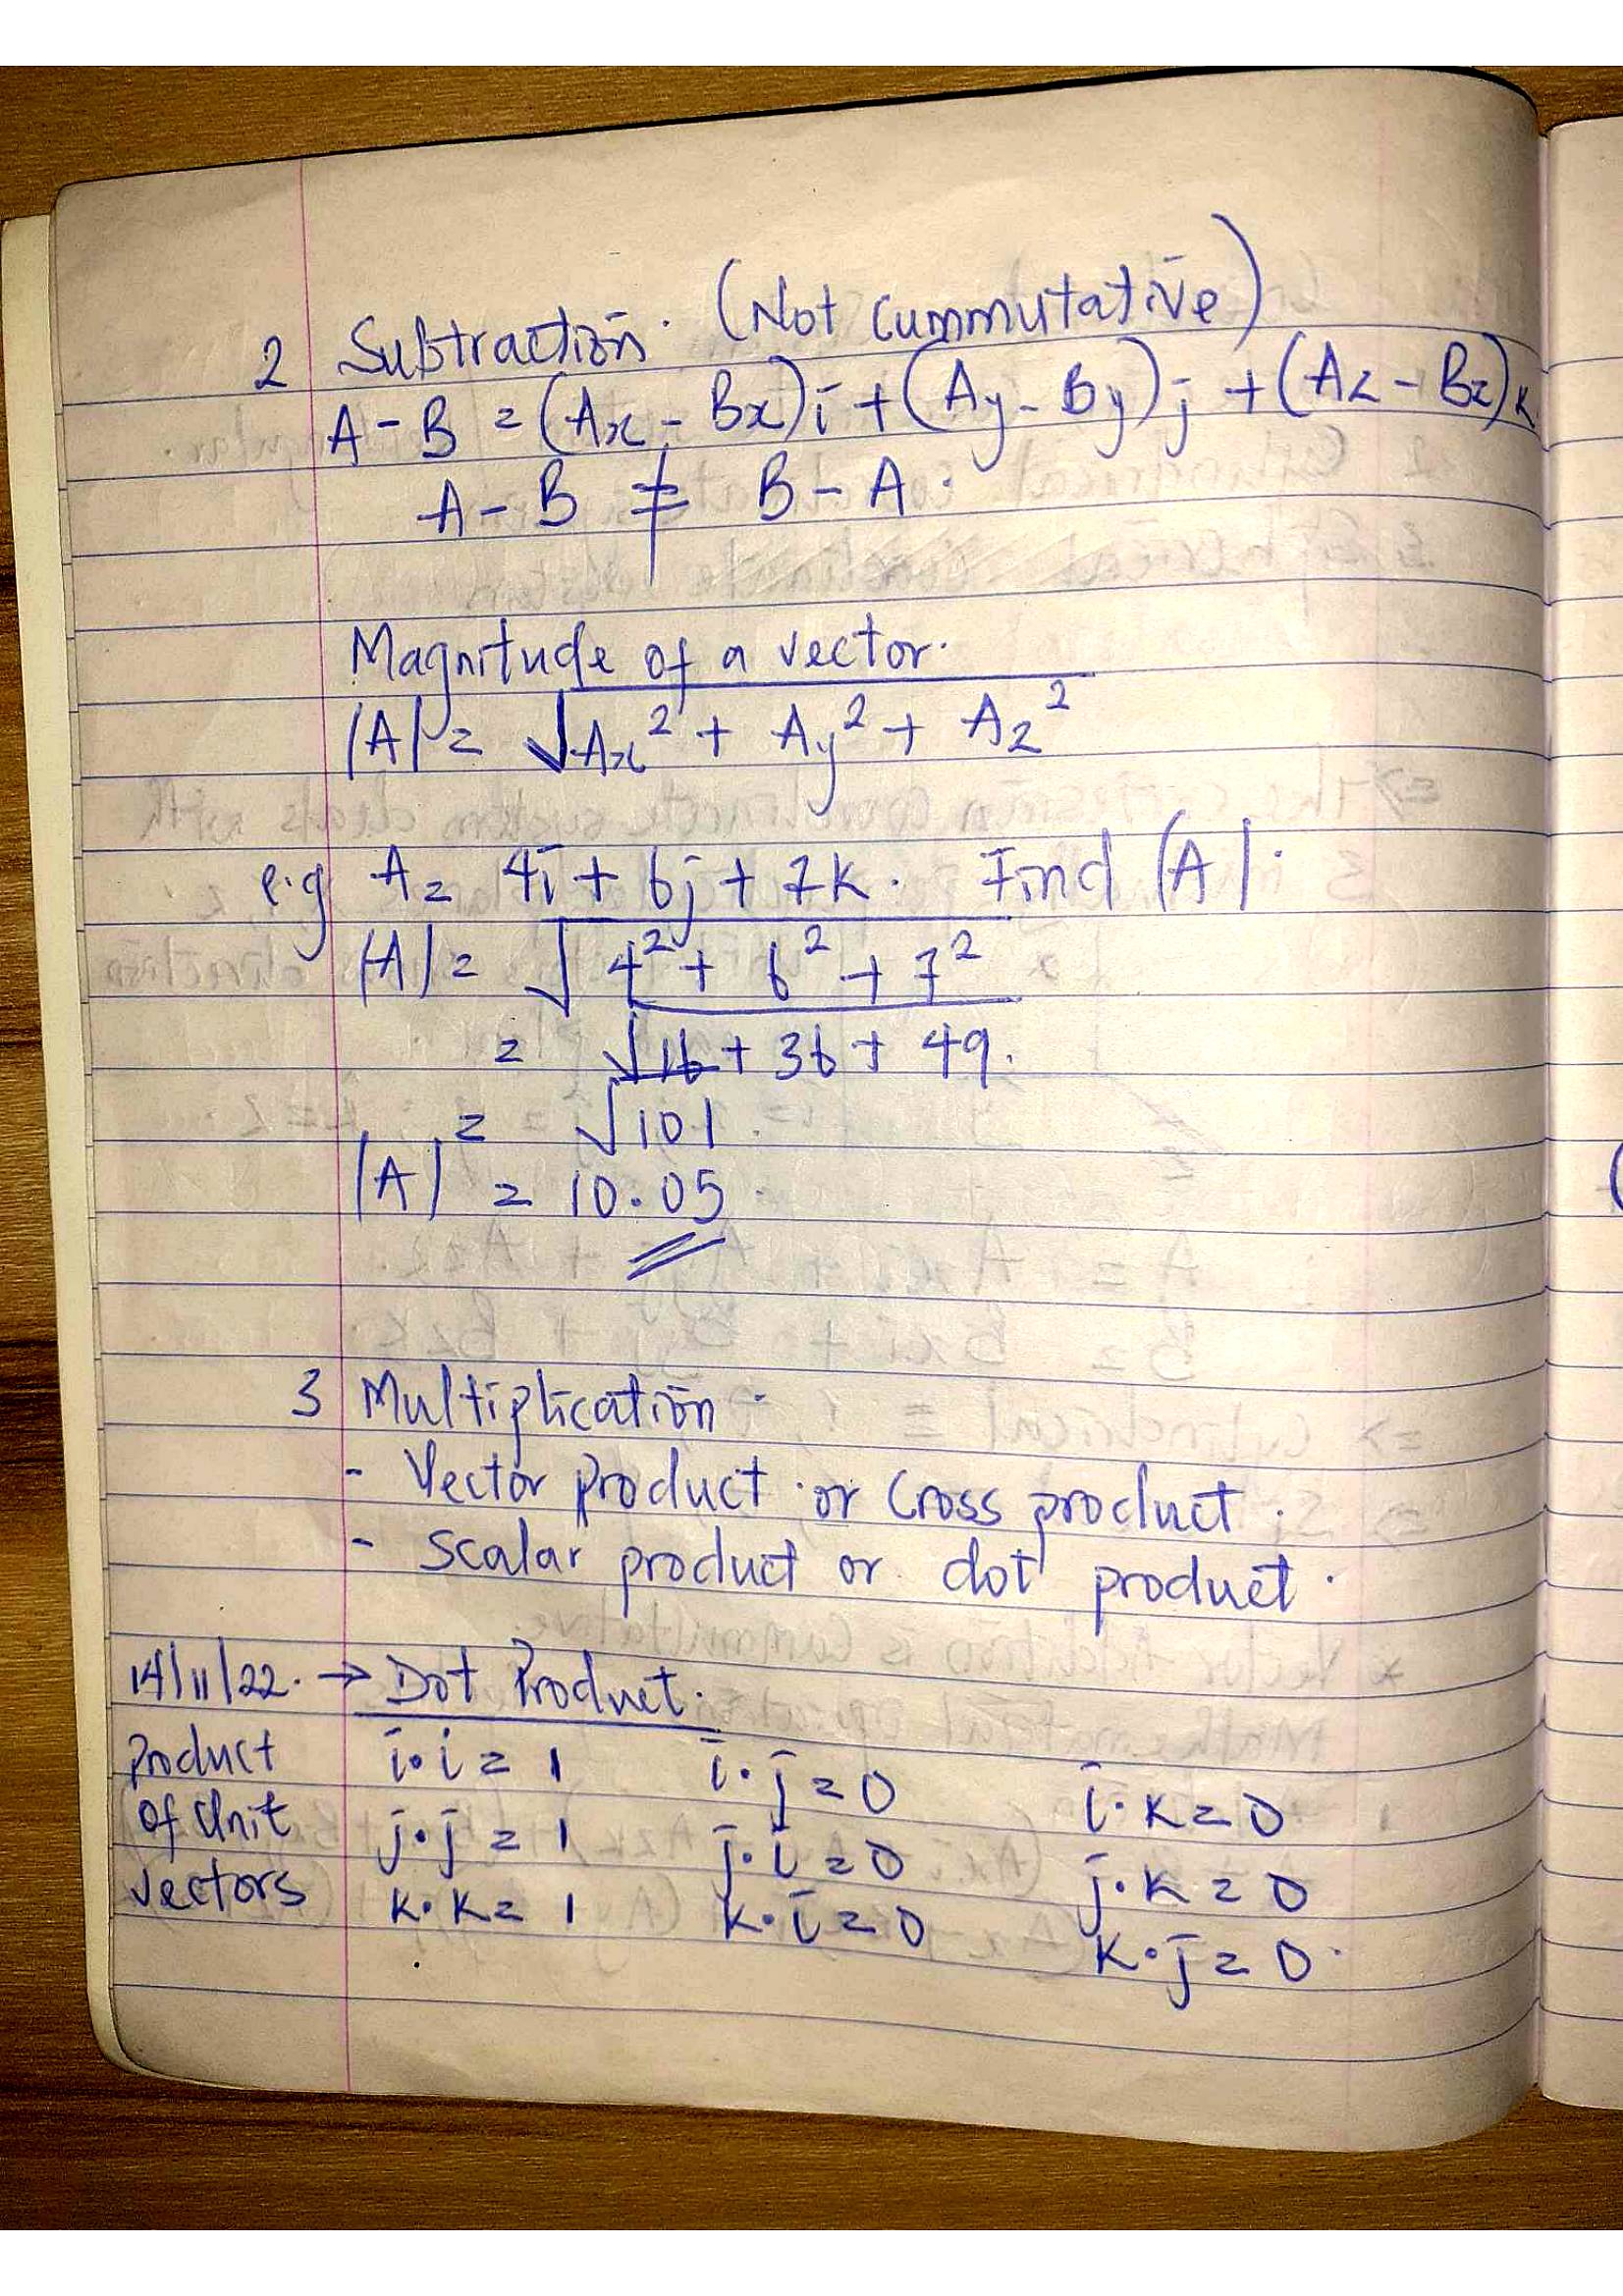 2 Subtraction. (Not Cummutative)
A - B = (Ax - Bx)i + (Ay - By)j + (Az - Bz)k.
A - B ≠ B - A.
Magnitude of a vector.
|A| = √Ax² + Ay² + Az²
e.g A = 4i + 6j + 7k. Find |A|.
|A| = √4² + 6² + 7²
= √16 + 36 + 49.
= √101.
|A| = 10.05.
3 Multiplication.
- Vector product or Cross product.
- Scalar product or dot product.
14/11/22. → Dot Product.
product of Unit vectors
i·i = 1 i·j = 0 i·k = 0
j·j = 1 j·i = 0 j·k = 0
k·k = 1 k·i = 0 k·j = 0.